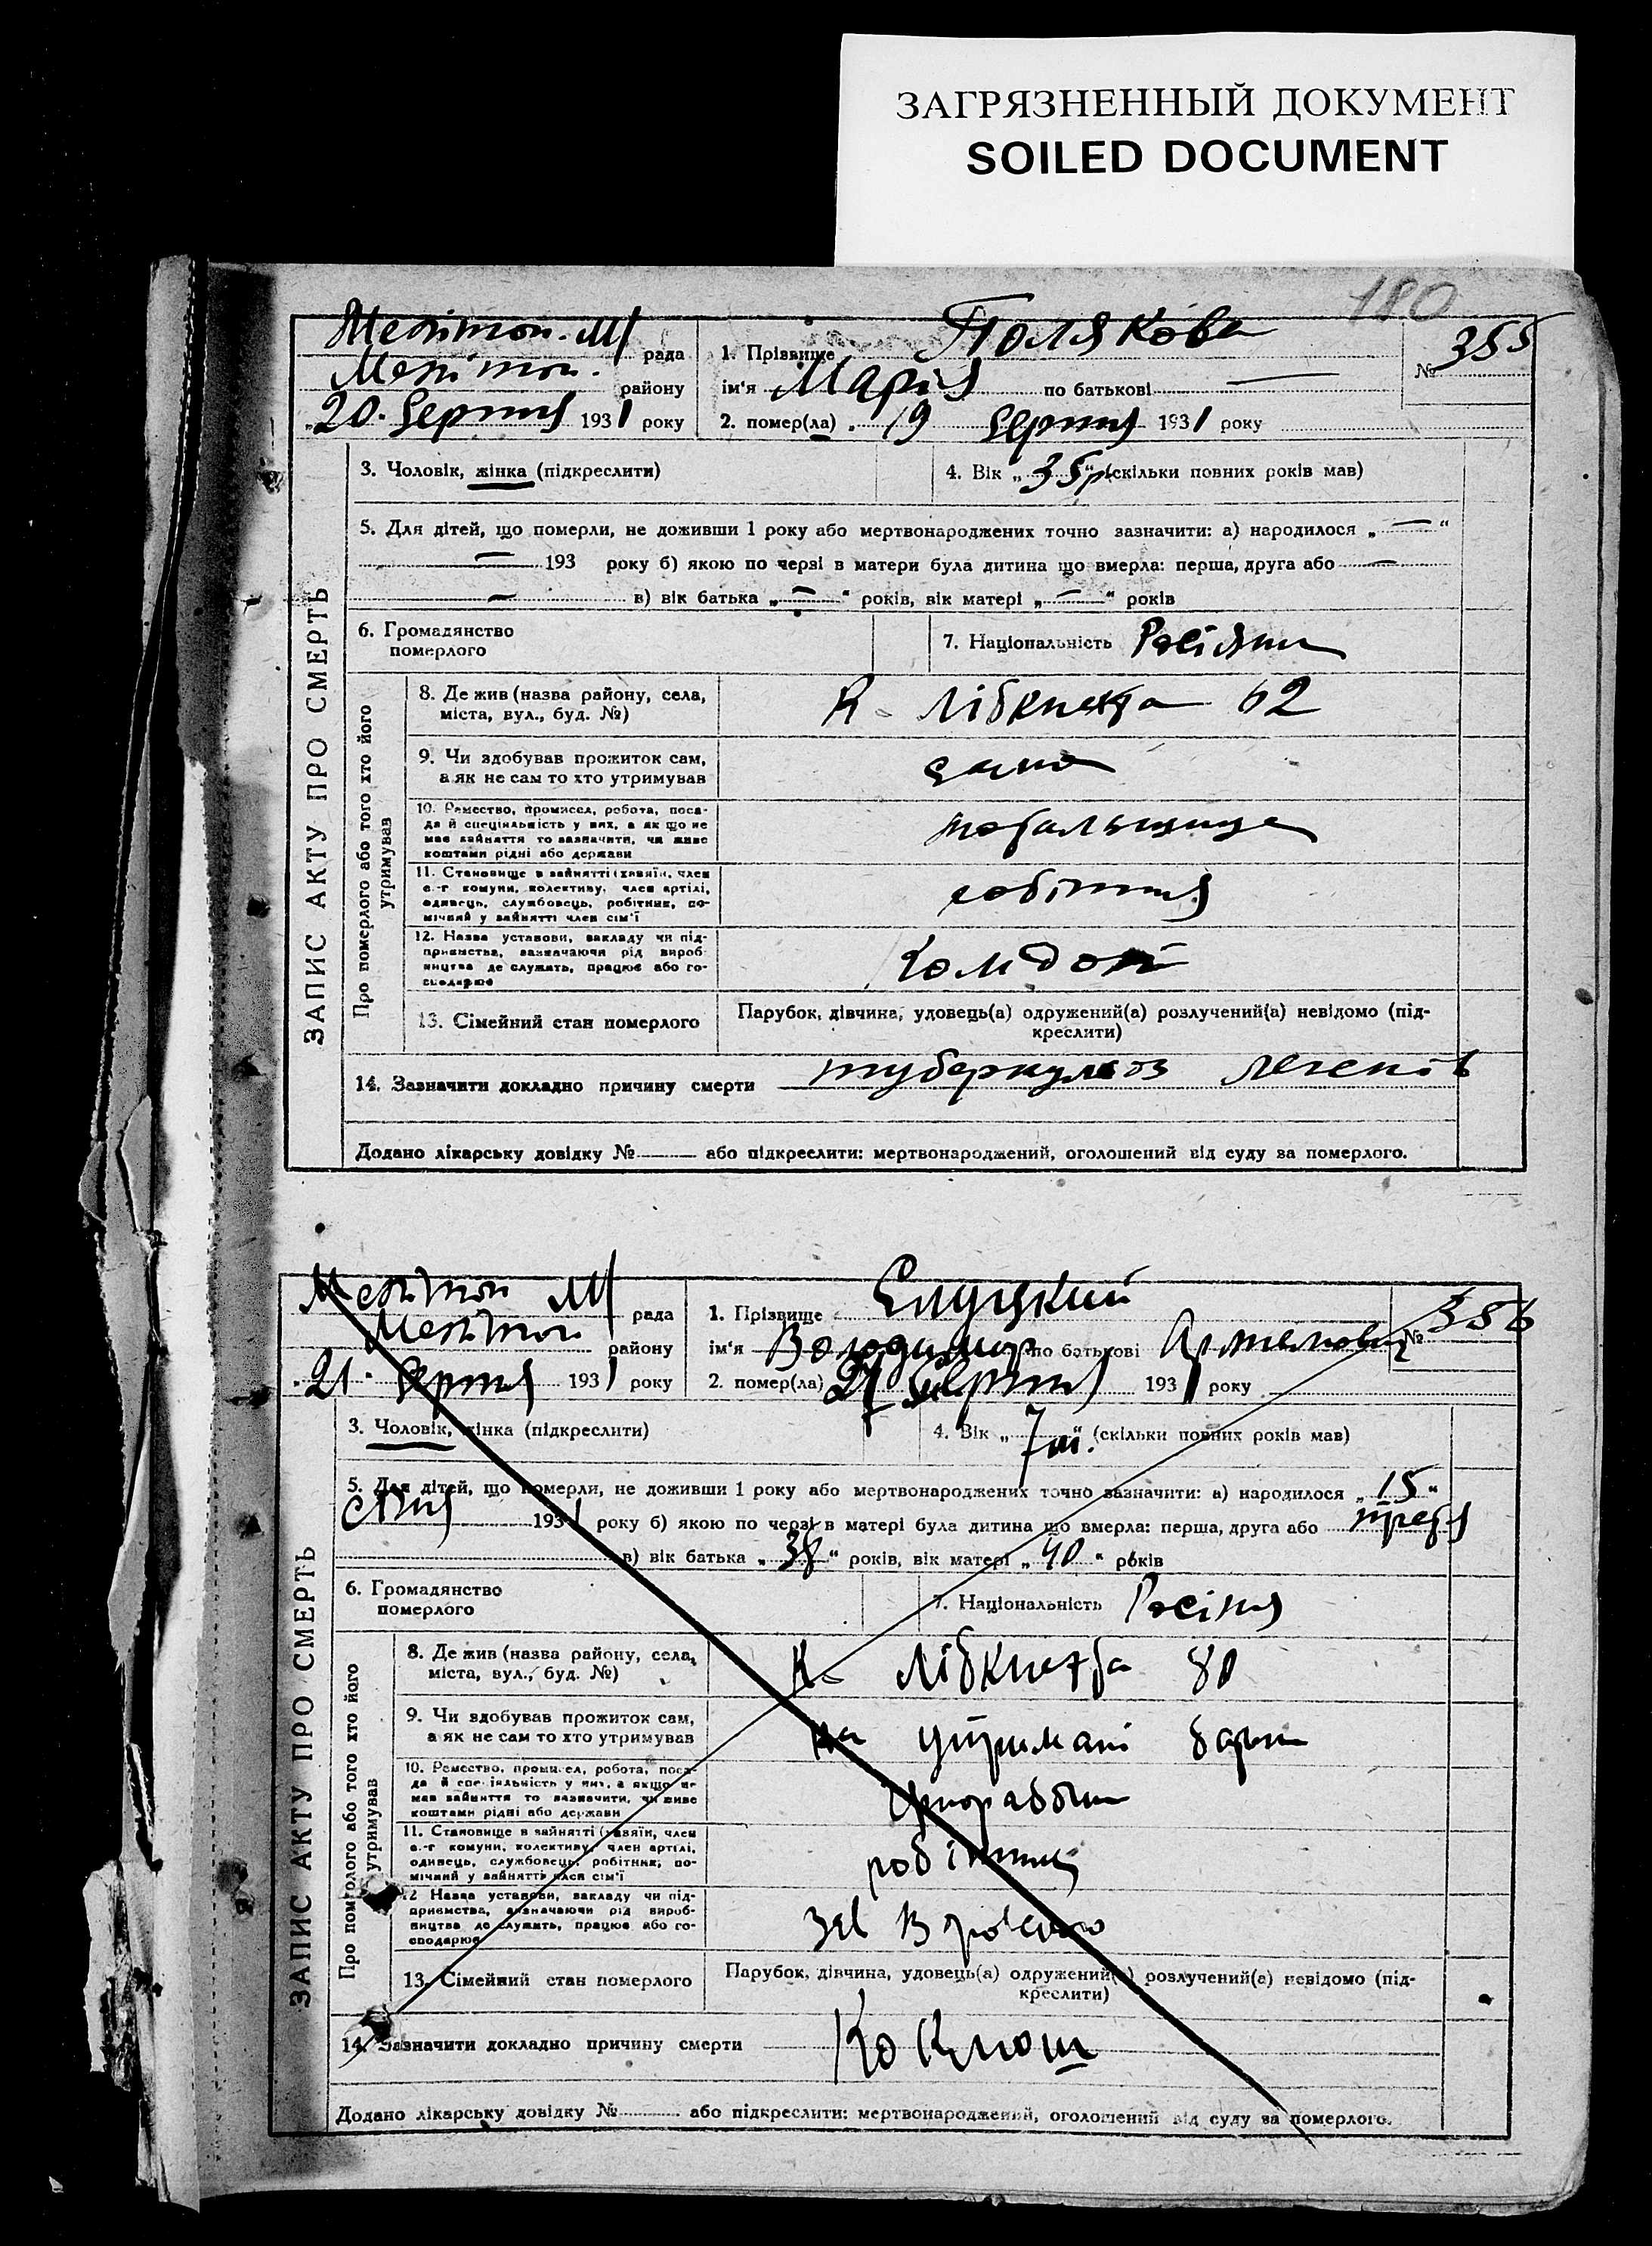 ЗАГРЯЗНЕННЫЙ ДОКУМЕНТ
SOILED DOCUMENT
180
Мелітоп. М/ рада
Мелітоп. району
„20. Серпня 1931 року
1. Прізвище Полякова
ім'я Марія по батькові —
2. помер(ла) „19 Серпня 1931 року
№ 355
ЗАПИС АКТУ ПРО СМЕРТЬ
3. Чоловік, жінка (підкреслити)
4. Вік „35 р“ (скільки повних років мав)
5. Для дітей, що померли, не доживши 1 року або мертвонароджених точно зазначити: а) народилося „—“
— 193 року б) якою по черзі в матери була дитина що вмерла: перша, друга або —
— в) вік батька „—“ років, вік матері „—“ років
6. Громадянство
померлого
7. Національність
Про померлого або того хто його
утримував
8. Де жив (назва району, села,
міста, вул., буд. №)
К- Лібкнехта 62
9. Чи здобував прожиток сам,
а як не сам то хто утримував
сама
10. Ремество, промисел, робота, поса-
да й спеціяльність у них, а як що не
має зайняття то зазначити, чи живе
коштами рідні або держави
11. Становище в зайнятті (хазяїн, член
с.-г комуни, колективу, член артілі,
одинець, службовець, робітник, по-
мічний у зайнятті член сім'ї
12. Назва установи, закладу чи під-
приємства, зазначаючи рід вироб-
ництва де служить, працює або го-
сподарює
13. Сімейний стан померлого
Парубок, дівчина, удовець(а) одружений(а) розлучений(а) невідомо (під-
креслити)
14. Зазначити докладно причину смерти туберкульоз легенів
Додано лікарську довідку № або підкреслити: мертвонароджений, оголошений від суду за померлого.
Мелітоп М/ рада
Мелітоп району
„21. Серпня 1931 року
1. Прізвище Слуцкий
ім'я Володимир по батькові
2. помер(ла) Серпня 1931 року
№ 356
ЗАПИС АКТУ ПРО СМЕРТЬ
3. Чоловік, жінка (підкреслити)
4. Вік „7 м.“ (скільки повних років мав)
5. Для дітей, що померли, не доживши 1 року або мертвонароджених точно зазначити: а) народилося „15“
Січня 1931 року б) якою по черзі в матері була дитина що вмерла: перша, друга або третя
в) вік батька „38“ років, вік матері „40“ років
6. Громадянство
померлого
7. Національність
Про померлого або того хто його
утримував
8. Де жив (назва району, села,
міста, вул., буд. №)
К- Лібкнехта 80
9. Чи здобував прожиток сам,
а як не сам то хто утримував
на утримані батька
10. Ремество, промисел, робота, поса-
да й спеціяльність у них, а якщо не
мав зайняття то зазначити, чи живе
коштами рідні або держави
11. Становище в зайнятті (хазяїн, член
с.-г комуни, колективу, член артілі,
одинець, службовець, робітник, по-
мічний у зайнятті член сім'ї
робітник
12 Назва установи, закладу чи під-
приємства, зазначаючи рід вироб-
ництва де служить, працює або го-
сподарює
13. Сімейний стан померлого
Парубок, дівчина, удовець(а) одружений(а) розлучений(а) невідомо (під-
креслити)
14. Зазначити докладно причину смерти Коклюш
Додано лікарську довідку № або підкреслити: мертвонароджений, оголошений від суду за померлого.